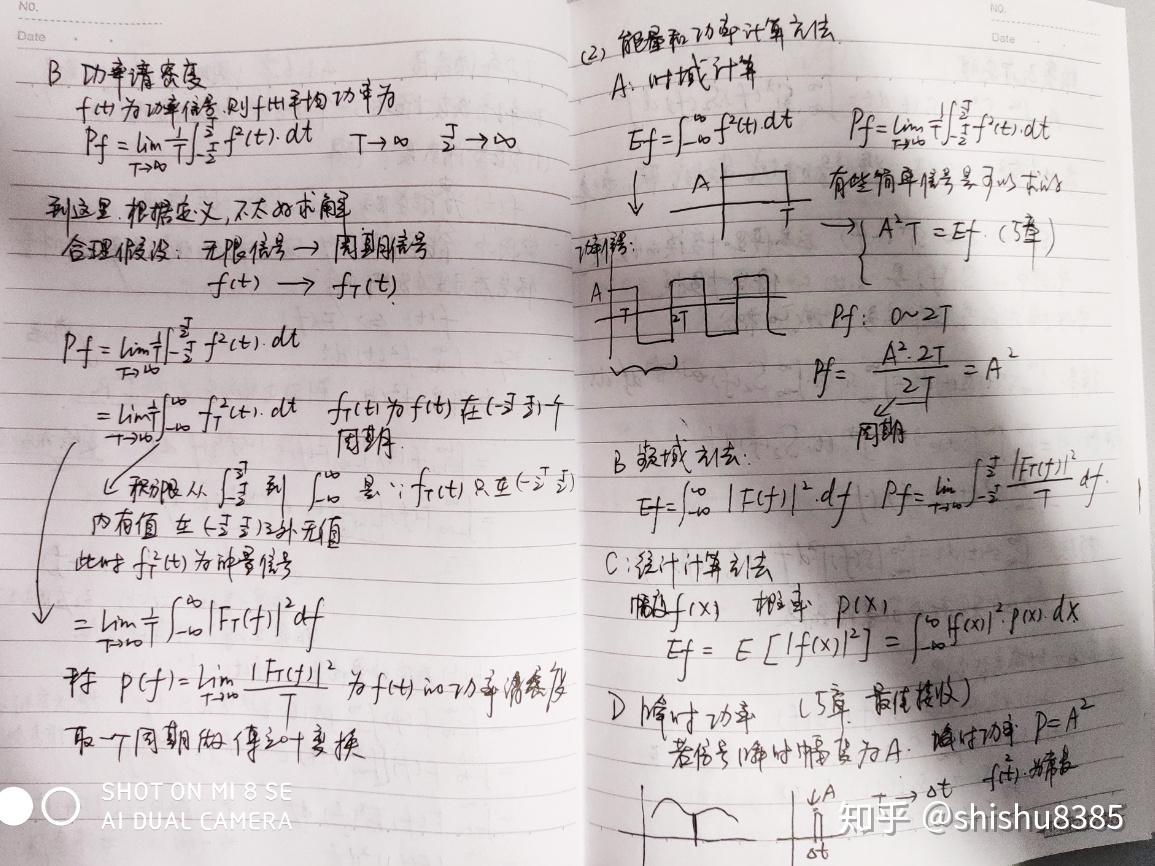 NO.
Date
B 功率谱密度
f(t)为功率信号,则f(t)平均功率为
Pf = lim T→∞ 1/T ∫_{-T/2}^{T/2} f²(t)·dt T→∞ T/2→∞
到这里,根据定义,不太好求解
合理假设: 无限信号 → 周期信号
f(t) → f_T(t)
Pf = lim T→∞ 1/T ∫_{-T/2}^{T/2} f²(t)·dt
= lim T→∞ 1/T ∫_{-∞}^{∞} f_T²(t)·dt f_T(t)为f(t)在(-T/2 T/2)一个
周期
积分限从 ∫_{-T/2}^{T/2} 到 ∫_{-∞}^{∞} 是∵f_T(t)只在(-T/2 T/2)
内有值 在(-T/2 T/2)之外无值
此时 f_T²(t)为能量信号
= lim T→∞ 1/T ∫_{-∞}^{∞} |F_T(f)|² df
称 p(f) = lim T→∞ |F_T(f)|²/T 为f(t)的功率谱密度
取一个周期做傅立叶变换
SHOT ON MI 8 SE
AI DUAL CAMERA
NO.
Date
(2) 能量和功率计算方法
A: 时域计算
Ef = ∫_{-∞}^{∞} f²(t)·dt Pf = lim T→∞ 1/T ∫_{-T/2}^{T/2} f²(t)·dt
A T 有些简单信号是可以求的
→ { A²T = Ef. (5章)
功率信号:
A T 2T
Pf: 0~2T
Pf = A²·2T / 2T = A²
周期
B 频域方法:
Ef = ∫_{-∞}^{∞} |F(f)|²·df. Pf = lim T→∞ ∫_{-T/2}^{T/2} |F_T(f)|²/T df.
C: 统计计算方法
幅度f(x) 概率 p(x)
Ef = E[|f(x)|²] = ∫_{-∞}^{∞} |f(x)|²·p(x)·dx
D 瞬时功率 (5章 最佳接收)
若信号瞬时幅度为A. 瞬时功率 P=A²
f²(t)为常量
↓A T → Δt
Δt
知乎 @shishu8385